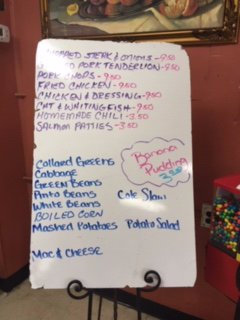 CHOPPED STEAK & ONIONS - 9.50
PORK TENDERLION - 9.50
PORK CHOPS - 9.50
FRIED CHICKEN - 9.50
CHICKEN & DRESSING - 9.50
CAT & WHITING FISH - 9.50
HOMEMADE CHILI - 3.50
SALMON PATTIES - 3.50
Banana
Pudding
Collard Greens
Cabbage
GREEN Beans
Pinto Beans Cole Slaw
White Beans
BOILED CORN
Mashed Potatoes Potato Salad
Mac & Cheese